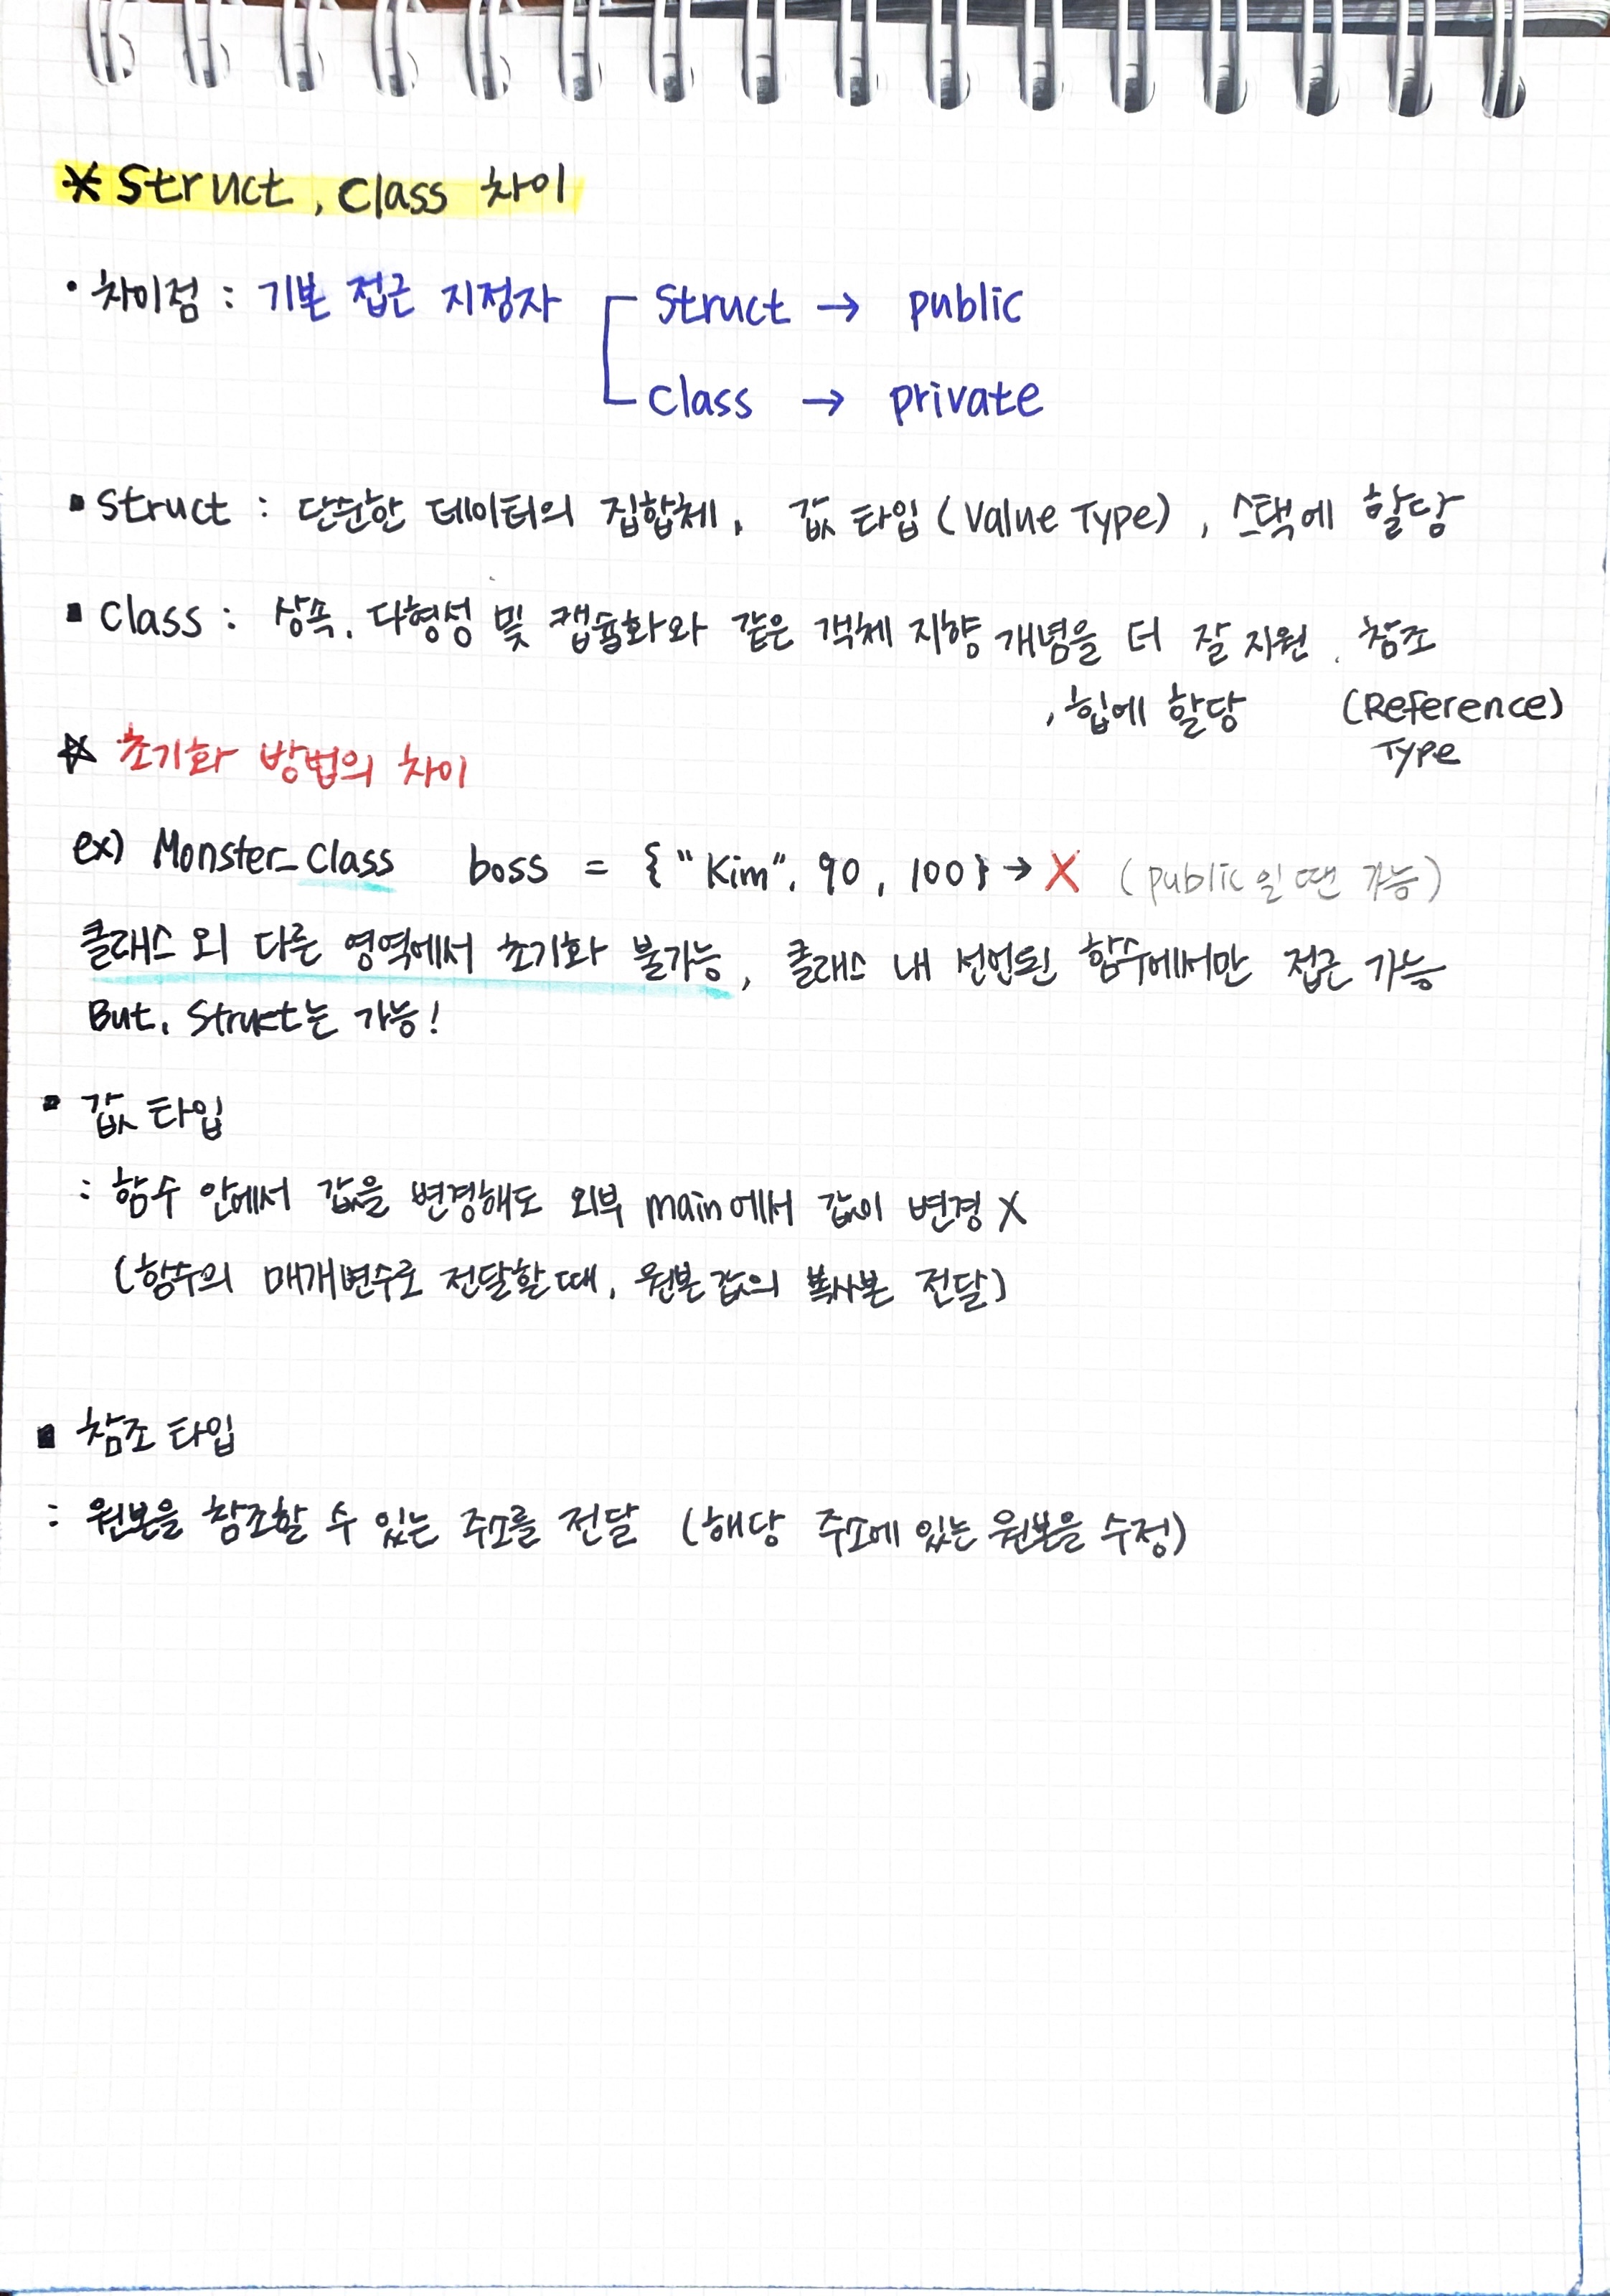 * Struct, Class 차이
• 차이점 : 기본 접근 지정자 Struct → public
Class → private
▪ Struct : 단순한 데이터의 집합체, 값 타입 (Value Type), 스택에 할당
▪ Class : 상속, 다형성 및 캡슐화와 같은 객체 지향 개념을 더 잘 지원, 참조
, 힙에 할당 (Reference)
Type
☆ 초기화 방법의 차이
ex) Monster_Class boss = {"Kim", 90, 100} → X (public일 땐 가능)
클래스 외 다른 영역에서 초기화 불가능, 클래스 내 선언된 함수에서만 접근 가능
But, Struct는 가능!
▪ 값 타입
: 함수 안에서 값을 변경해도 외부 main에서 값이 변경 X
(함수의 매개변수로 전달할 때, 원본 값의 복사본 전달)
▪ 참조 타입
: 원본을 참조할 수 있는 주소를 전달 (해당 주소에 있는 원본을 수정)